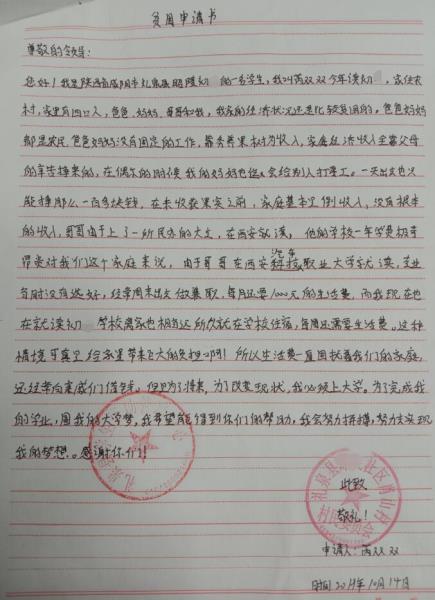 贫困申请书
尊敬的领导:
您好!我是陕西省咸阳市礼泉县昭陵初 的一名学生,我叫芮双双今年读初 ,家住农
村,家里有四口人,爸爸、妈妈、哥哥和我,我家的经济状况还是比较贫困的。爸爸妈妈
都是农民,爸爸妈妈没有固定的工作,靠务养果树为收入,家庭经济收入全靠父母
的辛苦挣来的,在偶尔的时候我的妈妈也 会给别人打零工。一天出去也只
能挣那么一百多块钱,在未收获果实之前,家庭基本零收入,没有根本
的收入,哥哥由于上了一所民办的大文,在西安就读,他的学校一年学费极其
昂贵对我们这个家庭来说,由于哥哥在西安汽车科技职业大学就读,专业
当时没有选好,经常周末出去做兼职,每月还要1000元的生活费,而我现在也
在就读初 学校离家也相当远所以就在学校住宿,每周还需要生活费。这种
情境可真是给家里带来巨大的负担啊!所以生活费一直困扰着我们的家庭,
还经常向亲戚们借钱,但是为了将来,为了改变现状,我必须上大学。为了完成我
的学业,圆我的大学梦,我希望能得到你们的帮助,我会努力拼搏,努力去实现
我的梦想。感谢你们!
此致
敬礼!
申请人:芮双双
时间2019年10月14日
礼泉县
礼泉县 社区 山村
村民委员会